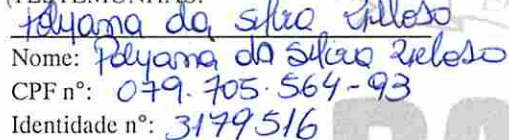 TESTEMUNHAS:
Polyana da Silva Zieloso
Nome: Polyana da Silva Zieloso
CPF nº: 079.705.564-93
Identidade nº: 3179516